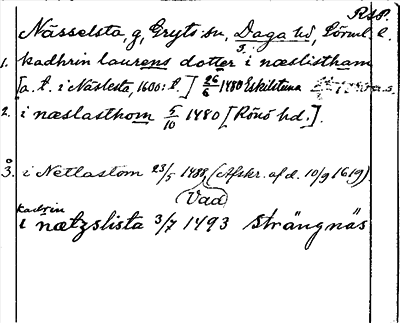 RSP.
Nässelsta, g, Gryts sn, Daga hd, Sörml. l.
1. kadhrin laurens dotter i næslistham
[a. t. i Näslesta, 1600: t.] 26/6 1480 Eskilstuna
2. i næslasthom 5/10 1480 [Rönö hd.].
3. i Netlastom 23/5 1488, (Afskr. af d. 10/9 1619).
Vad
kadrin
i nætzslista 3/7 1493 Strängnäs